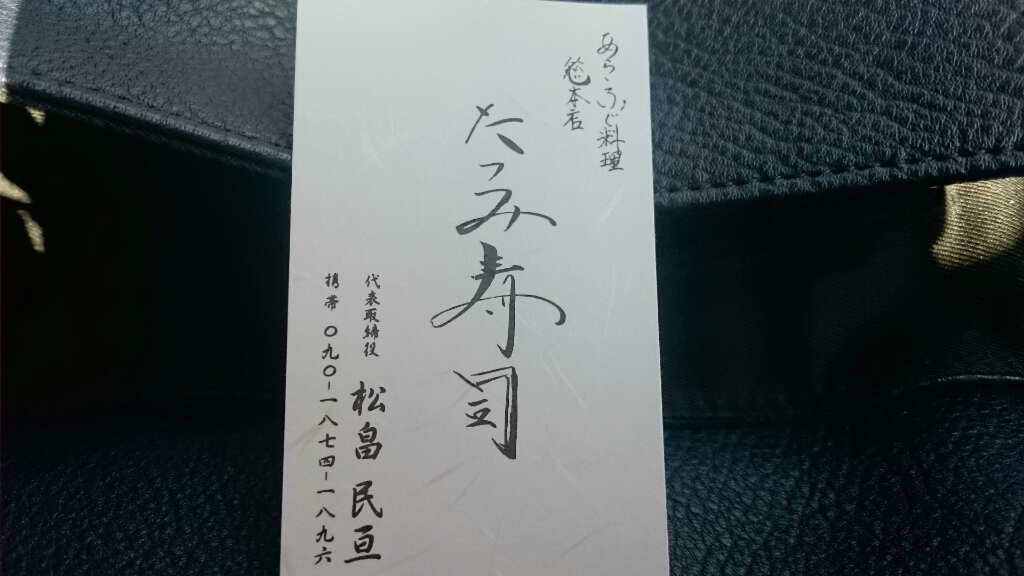 あら、ふぐ料理
総本店
たつみ寿司
代表取締役 松畠 民亘
携帯 〇九〇-一八七四-一八九六